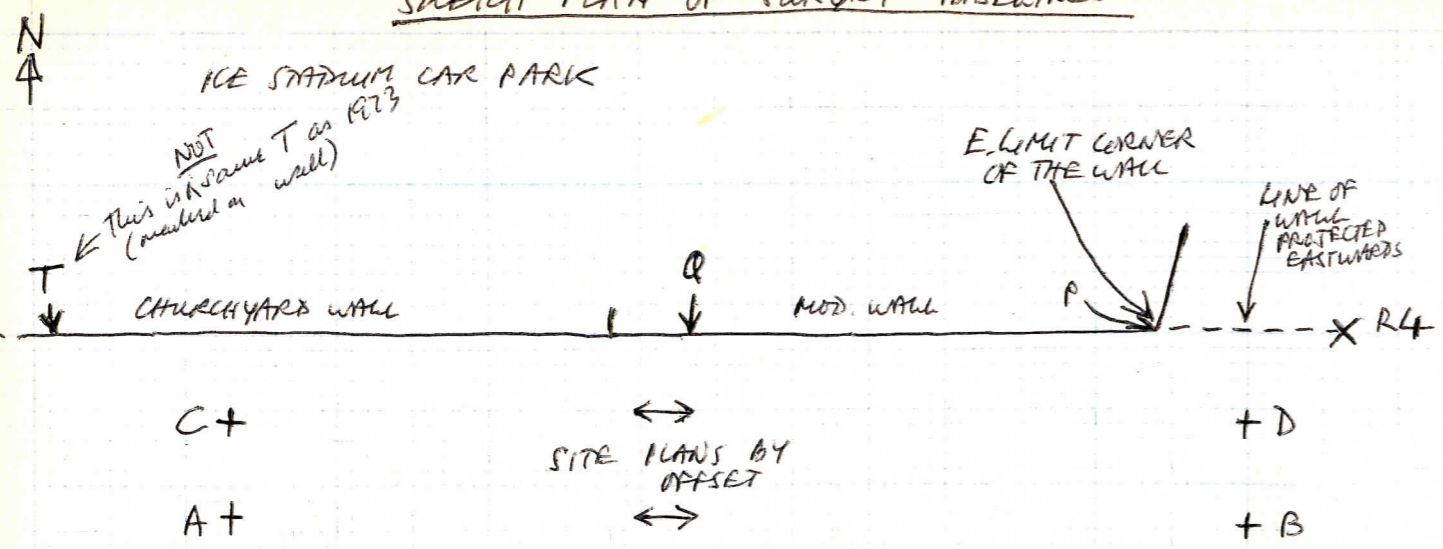 SKETCH PLAN OF SURVEY BASELINES
N
ICE STADIUM CAR PARK
NOT
This is same T as 1973
(marked on wall)
E. LIMIT CORNER
OF THE WALL
LINE OF
WALL
PROJECTED
EASTWARDS
T
Q
P
CHURCHYARD WALL
MOD. WALL
X R4
C+
+ D
SITE PLANS BY
OFFSET
A+
+ B